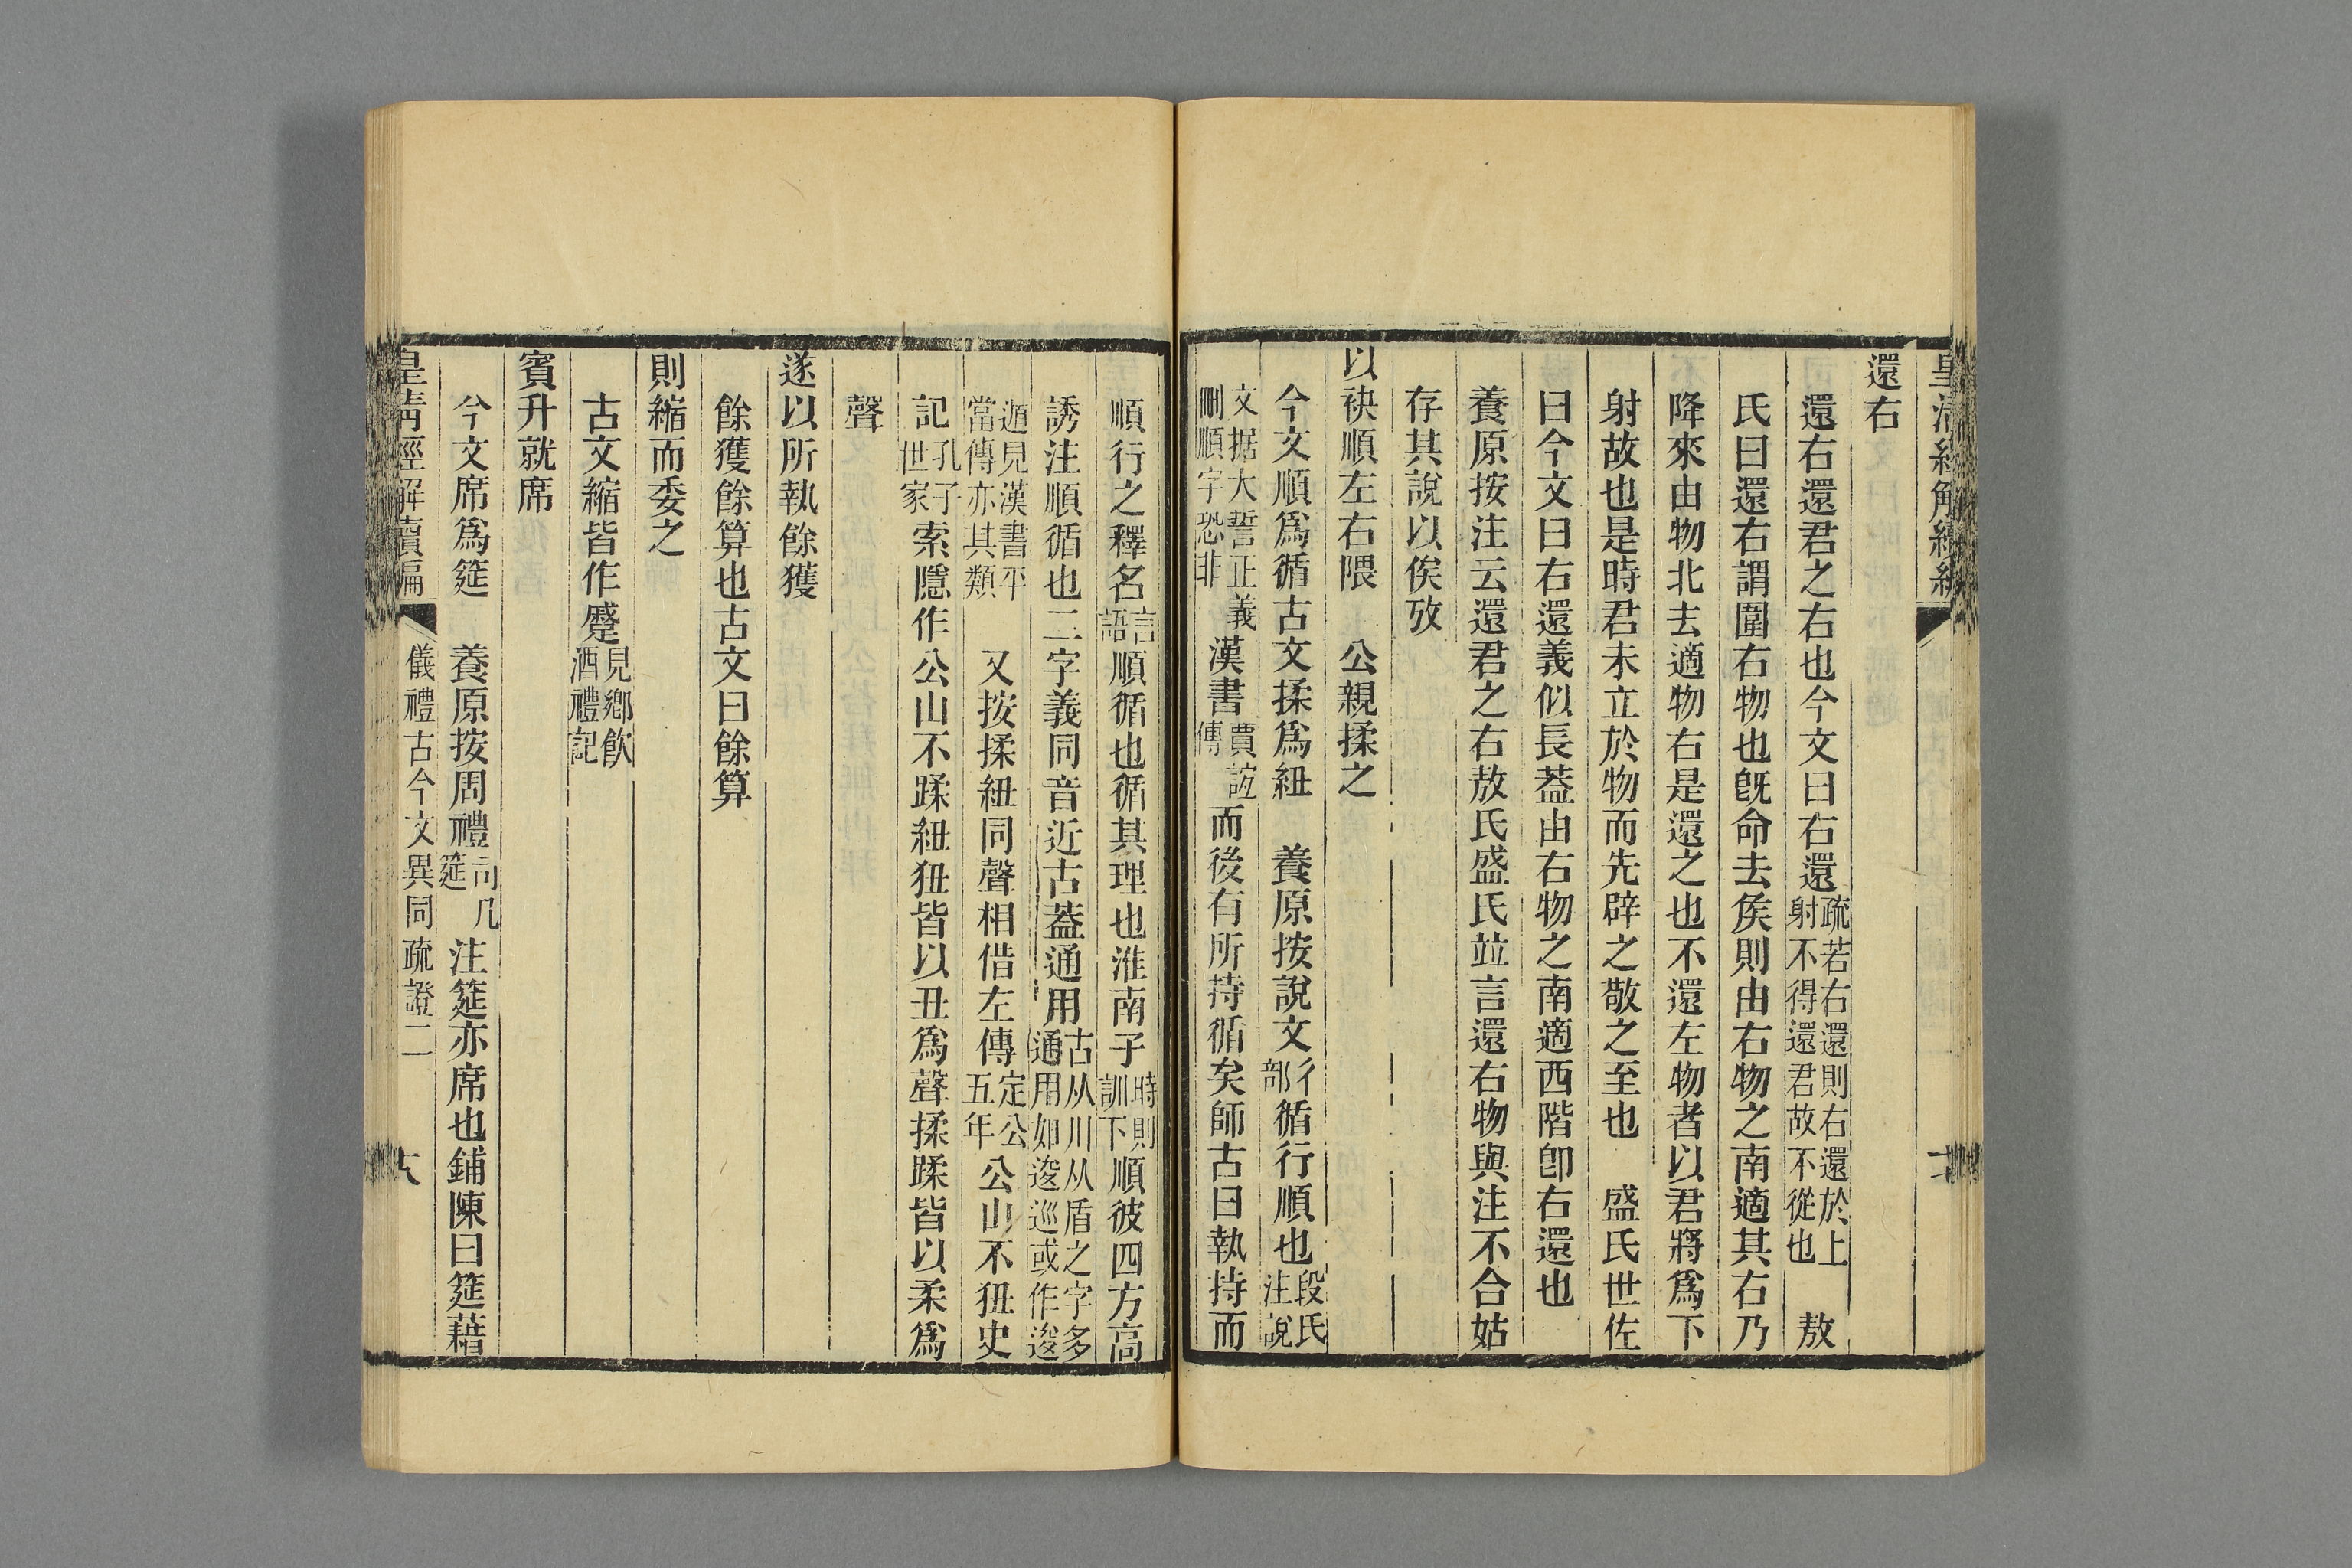 皇清經解續編
還右
還右還君之右也今文曰右還疏若右還則右還於上射不得還君故不從也　敖
氏曰還右謂圍右物也旣命去矦則由右物之南適其右乃
降來由物北去適物右是還之也不還左物者以君將爲下
射故也是時君未立於物而先辟之敬之至也　盛氏世佐
曰今文曰右還義似長葢由右物之南適西階卽右還也
養原按注云還君之右敖氏盛氏並言還右物與注不合姑
存其說以俟攷
以袂順左右隈　公親揉之
今文順爲循古文揉爲紐　養原按說文彳部循行順也段氏注說
文据大誓正義刪順字恐非漢書賈誼傳而後有所持循矣師古曰執持而
順行之釋名言語順循也循其理也淮南子時則訓下順彼四方高
誘注順循也二字義同音近古葢通用古从川从盾之字多通用如逡巡或作逡
遁見漢書平當傳亦其類　又按揉紐同聲相借左傳定公五年公山不狃史
記孔子世家索隱作公山不蹂紐狃皆以丑爲聲揉蹂皆以柔爲
聲
遂以所執餘獲
餘獲餘算也古文曰餘算
則縮而委之
古文縮皆作蹙見鄉飮酒禮記
賓升就席
今文席爲筵　養原按周禮司几筵注筵亦席也鋪陳曰筵藉
皇清經解續編　儀禮古今文異同疏證二　六